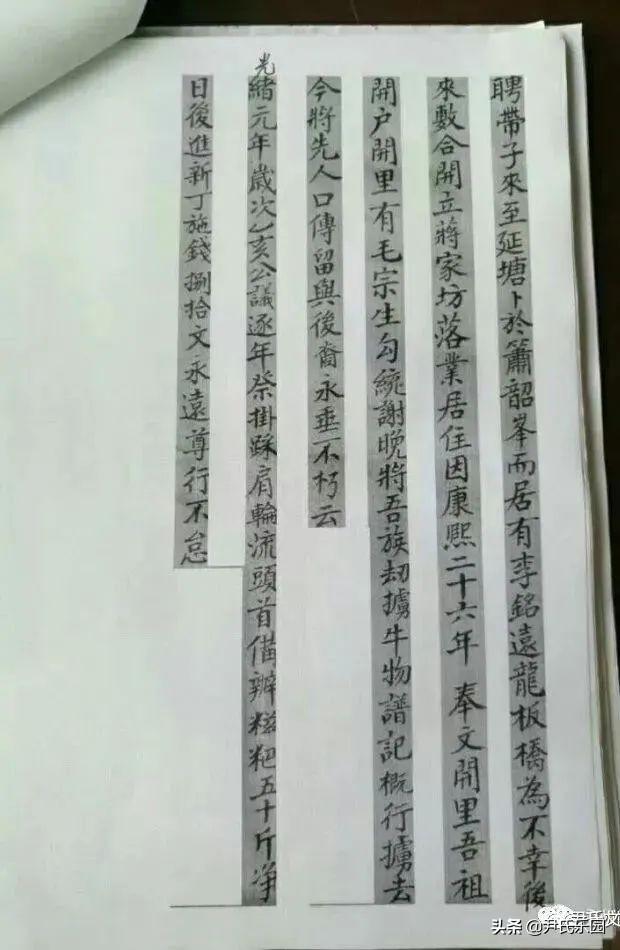 聘帶子來至延塘卜於簫韶峯而居有李銘遠龍板橋為不幸後
來數合開立蔣家坊落業居住因康熙二十六年 奉文開里吾祖
開户開里有毛宗生勾統謝晚將吾族刼擄牛物譜記概行擄去
今將先人口傳留與後裔永垂不朽云
光緒元年歲次乙亥公議逐年祭掛踩肩輪流頭首備辦糍粑五十斤淨
日後進新丁施錢捌拾文永遠尊行不怠
头条 @尹氏乐园